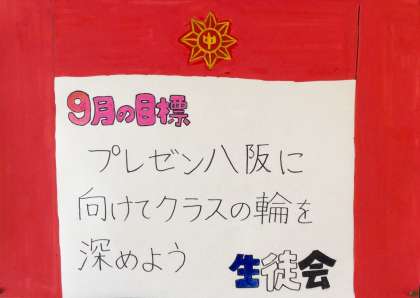 中
9月の目標
プレゼン八阪に
向けてクラスの輪を
深めよう
生徒会